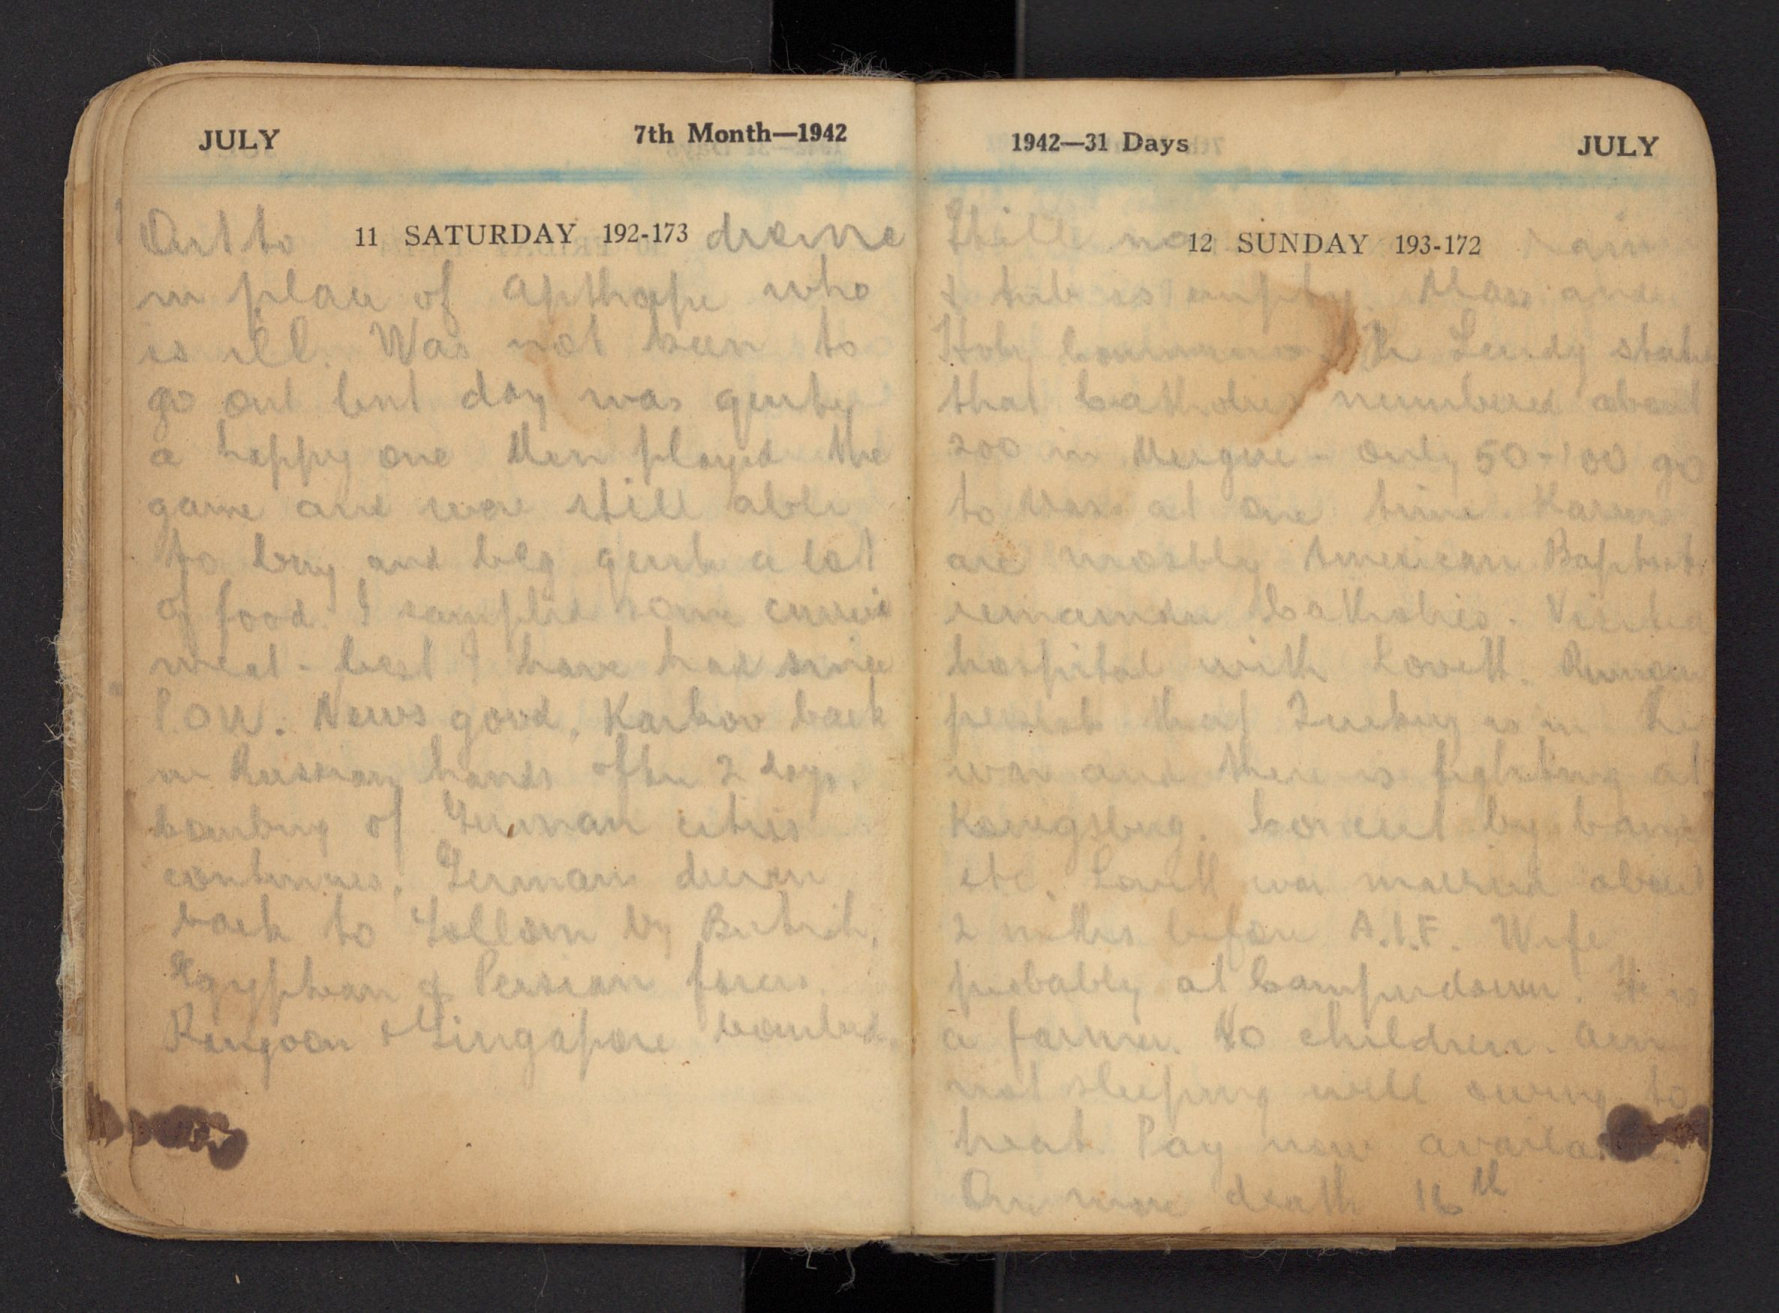 JULY 7th Month—1942
Out to 11 SATURDAY 192-173 drome
in place of Apthorpe who
is ill. Was not keen to
go out but day was quite
a happy one. Men played the
game and were still able
to buy and beg quite a lot
of food. I sampled some curried
meat - best I have had since
P.O.W. News good. Karkov back
in Russian hands after 2 days.
bombing of German cities
continues. Germans driven
back to Sollom by British,
Egyptian & Persian forces.
Rangoon & Singapore bombed.
1942—31 Days JULY
Still no 12 SUNDAY 193-172 rain
& tub is empty. Mass and
Holy Communion. Fr Lundy states
that Catholics numbered about
200 in Mergui - only 50-100 go
to Mass at one time. Karens
are mostly American Baptists
remainder Catholics. Visited
hospital with Lovett. Rumours
persist that Turkey is in the
war and there is fighting at
Konigsberg. Concert by band
etc. Lovett was married about
2 mths before A.I.F. Wife
probably at Camperdown. He is
a farmer. No children. Am
not sleeping well owing to
heat. Pay now
One more death 16th